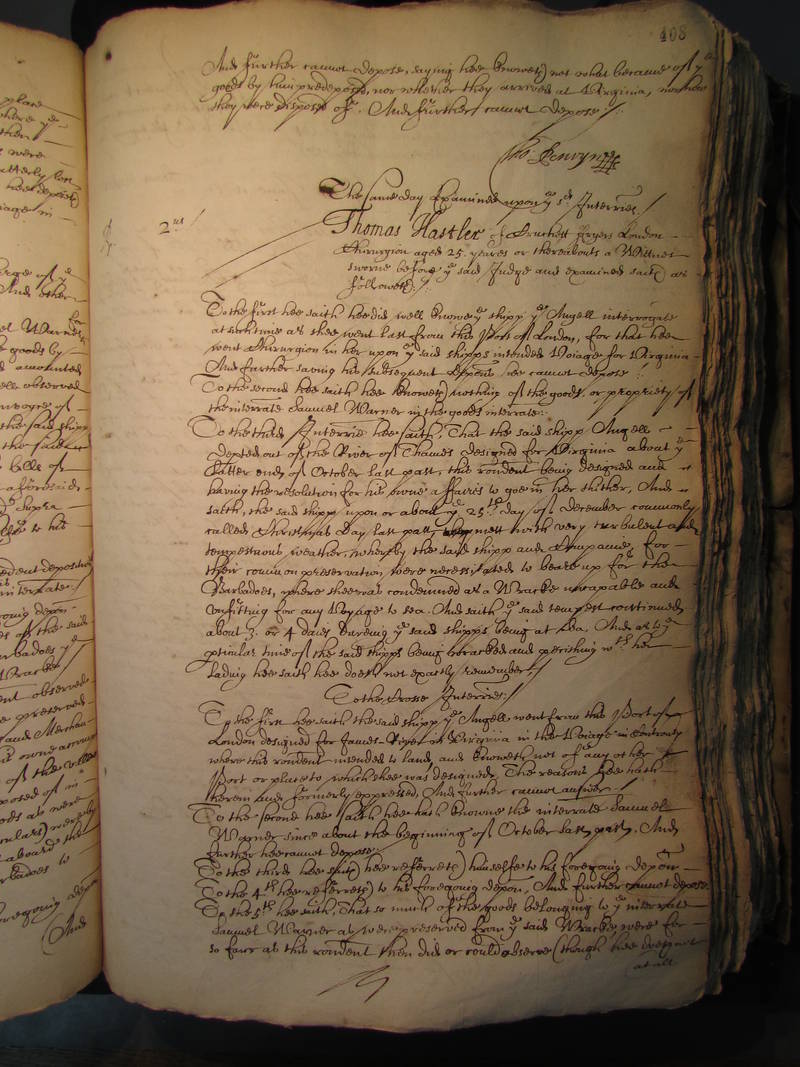 place
where ye
other
were
utterly lost
hee deposeth
voiage in
And other
Warner
goods by
amounted
well observed
the said shipp
the said
bills of
aforesaid
Supra
to his
precedent deposition
interrate
foregoing depon
of the said
Barbadoes ye
Wracke
observed
preserved
and Merchan
owne accompt
of the
disposed of in
goods as were
aboard the
Barbadoes to
foregoing depon
(And
408
And further cannot depose, saying hee knoweth not what became of ye
goods by him predeposed, nor whether they arrived at Virginia, nor how
they were disposed of. And further cannot depose /:
Tho: Benwyn
The same day Examined upon ye sd Interries. /
2us /
Thomas Hastler of Crutchett Fryers London
Chirurgion aged 25. yeares or thereabouts a Witnes
sworne before ye said Judge and examined saith as
followeth: /:
To the first hee saith hee did well knowe ye shipp ye Angell interrogate
at such time as shee went last from this Port of London, for that hee
went Chirurgion in her upon ye said shipps intended Voiage for Virginia
And further saving his subsequent depons hee cannot depose /
To the second hee saith hee knoweth nothing of the goods or propriety of
the interrate Samuel Warner in the goods interrate:
To the third Interrie hee saith, That the said shipp Angell
depted out of the River of Thames designed for Virginia about ye
latter end of October last past, this rondent being designed and
having the resolution for his owne affaires to goe in her thither, And
saith, the said shipp upon or about ye 25th day of December commonly
called Christmas Day last past, mett with very turbulent and
tempestious weather, whereby the said shipp and Companie, for
their common preservation were necessitated to beare up for the
Barbadoes, where shee was condemned as a Wracke uncapable and
unfitting for any Voyage to sea. And saith ye said tempest continued
about 3. or 4 daies dureing ye said shipps being at sea. And as to ye
pticular time of the said shipps being wracked and perishing wth her
Ladeing hee saith hee doeth not exactly remember. /
To the Crosse Interries: /
To the first hee saith the said shipp ye Angell went from this Port of
London designed for James-River in Virginia in the Voiage in Controversy
where this rondent intended to land, and knoweth not of any other
Port or place to which shee was designed, The reasons hee hath
therein and formerly expressed, And further cannot answer
To the second hee saith hee hath knowne the interrate Samuell
Warner since about the beginning of October last past, And
further hee cannot depose:
To the third hee saith hee referreth himselfe to his foregoing depon
To the 4th hee referreth to his foregoing depon, And further cannot depose
To the 5th hee saith, That so much of the goods belonging to ye interrate
Samuel Warner as were preserved from ye said Wracke, were for
so farre as this rondent then did or could observe (though hee doeth not
at all